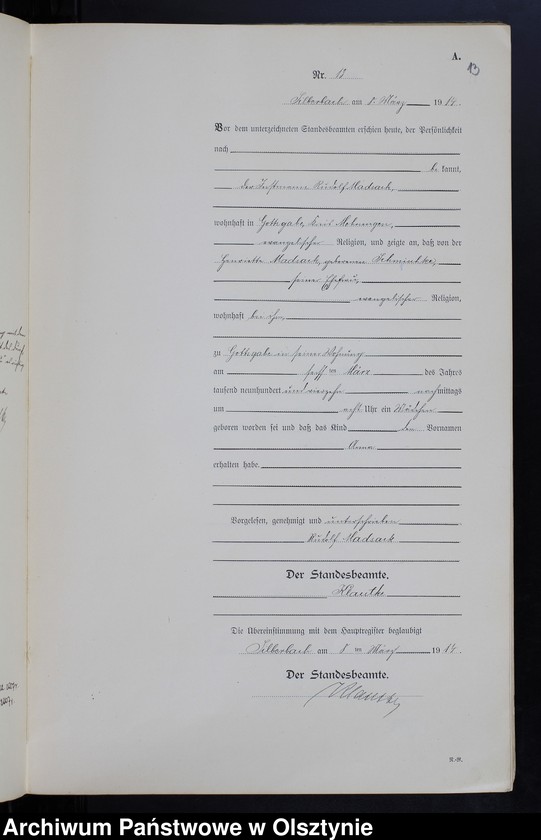 A.
13
Nr. 13
Silberbach am 8. März 1914.
Vor dem unterzeichneten Standesbeamten erschien heute, der Persönlichkeit
nach
be kannt,
der Instmann Rudolf Madsack,
wohnhaft in Gottesgabe, Kreis Mohrungen,
evangelischer Religion, und zeigte an, daß von der
Henriette Madsack, geborenen
seiner Ehefrau,
evangelischer Religion,
wohnhaft bei ihm,
zu Gottesgabe in seiner Wohnung
am ten März des Jahres
tausend neunhundert und vierzehn nachmittags
um acht Uhr ein Mädchen
geboren worden sei und daß das Kind den Vornamen
Anna
erhalten habe.
Vorgelesen, genehmigt und unterschrieben
Rudolf Madsack
Der Standesbeamte.
Klautke
Die Übereinstimmung mit dem Hauptregister beglaubigt
Silberbach am 8 ten März 1914.
Der Standesbeamte.
Klautke
Archiwum Państwowe w Olsztynie